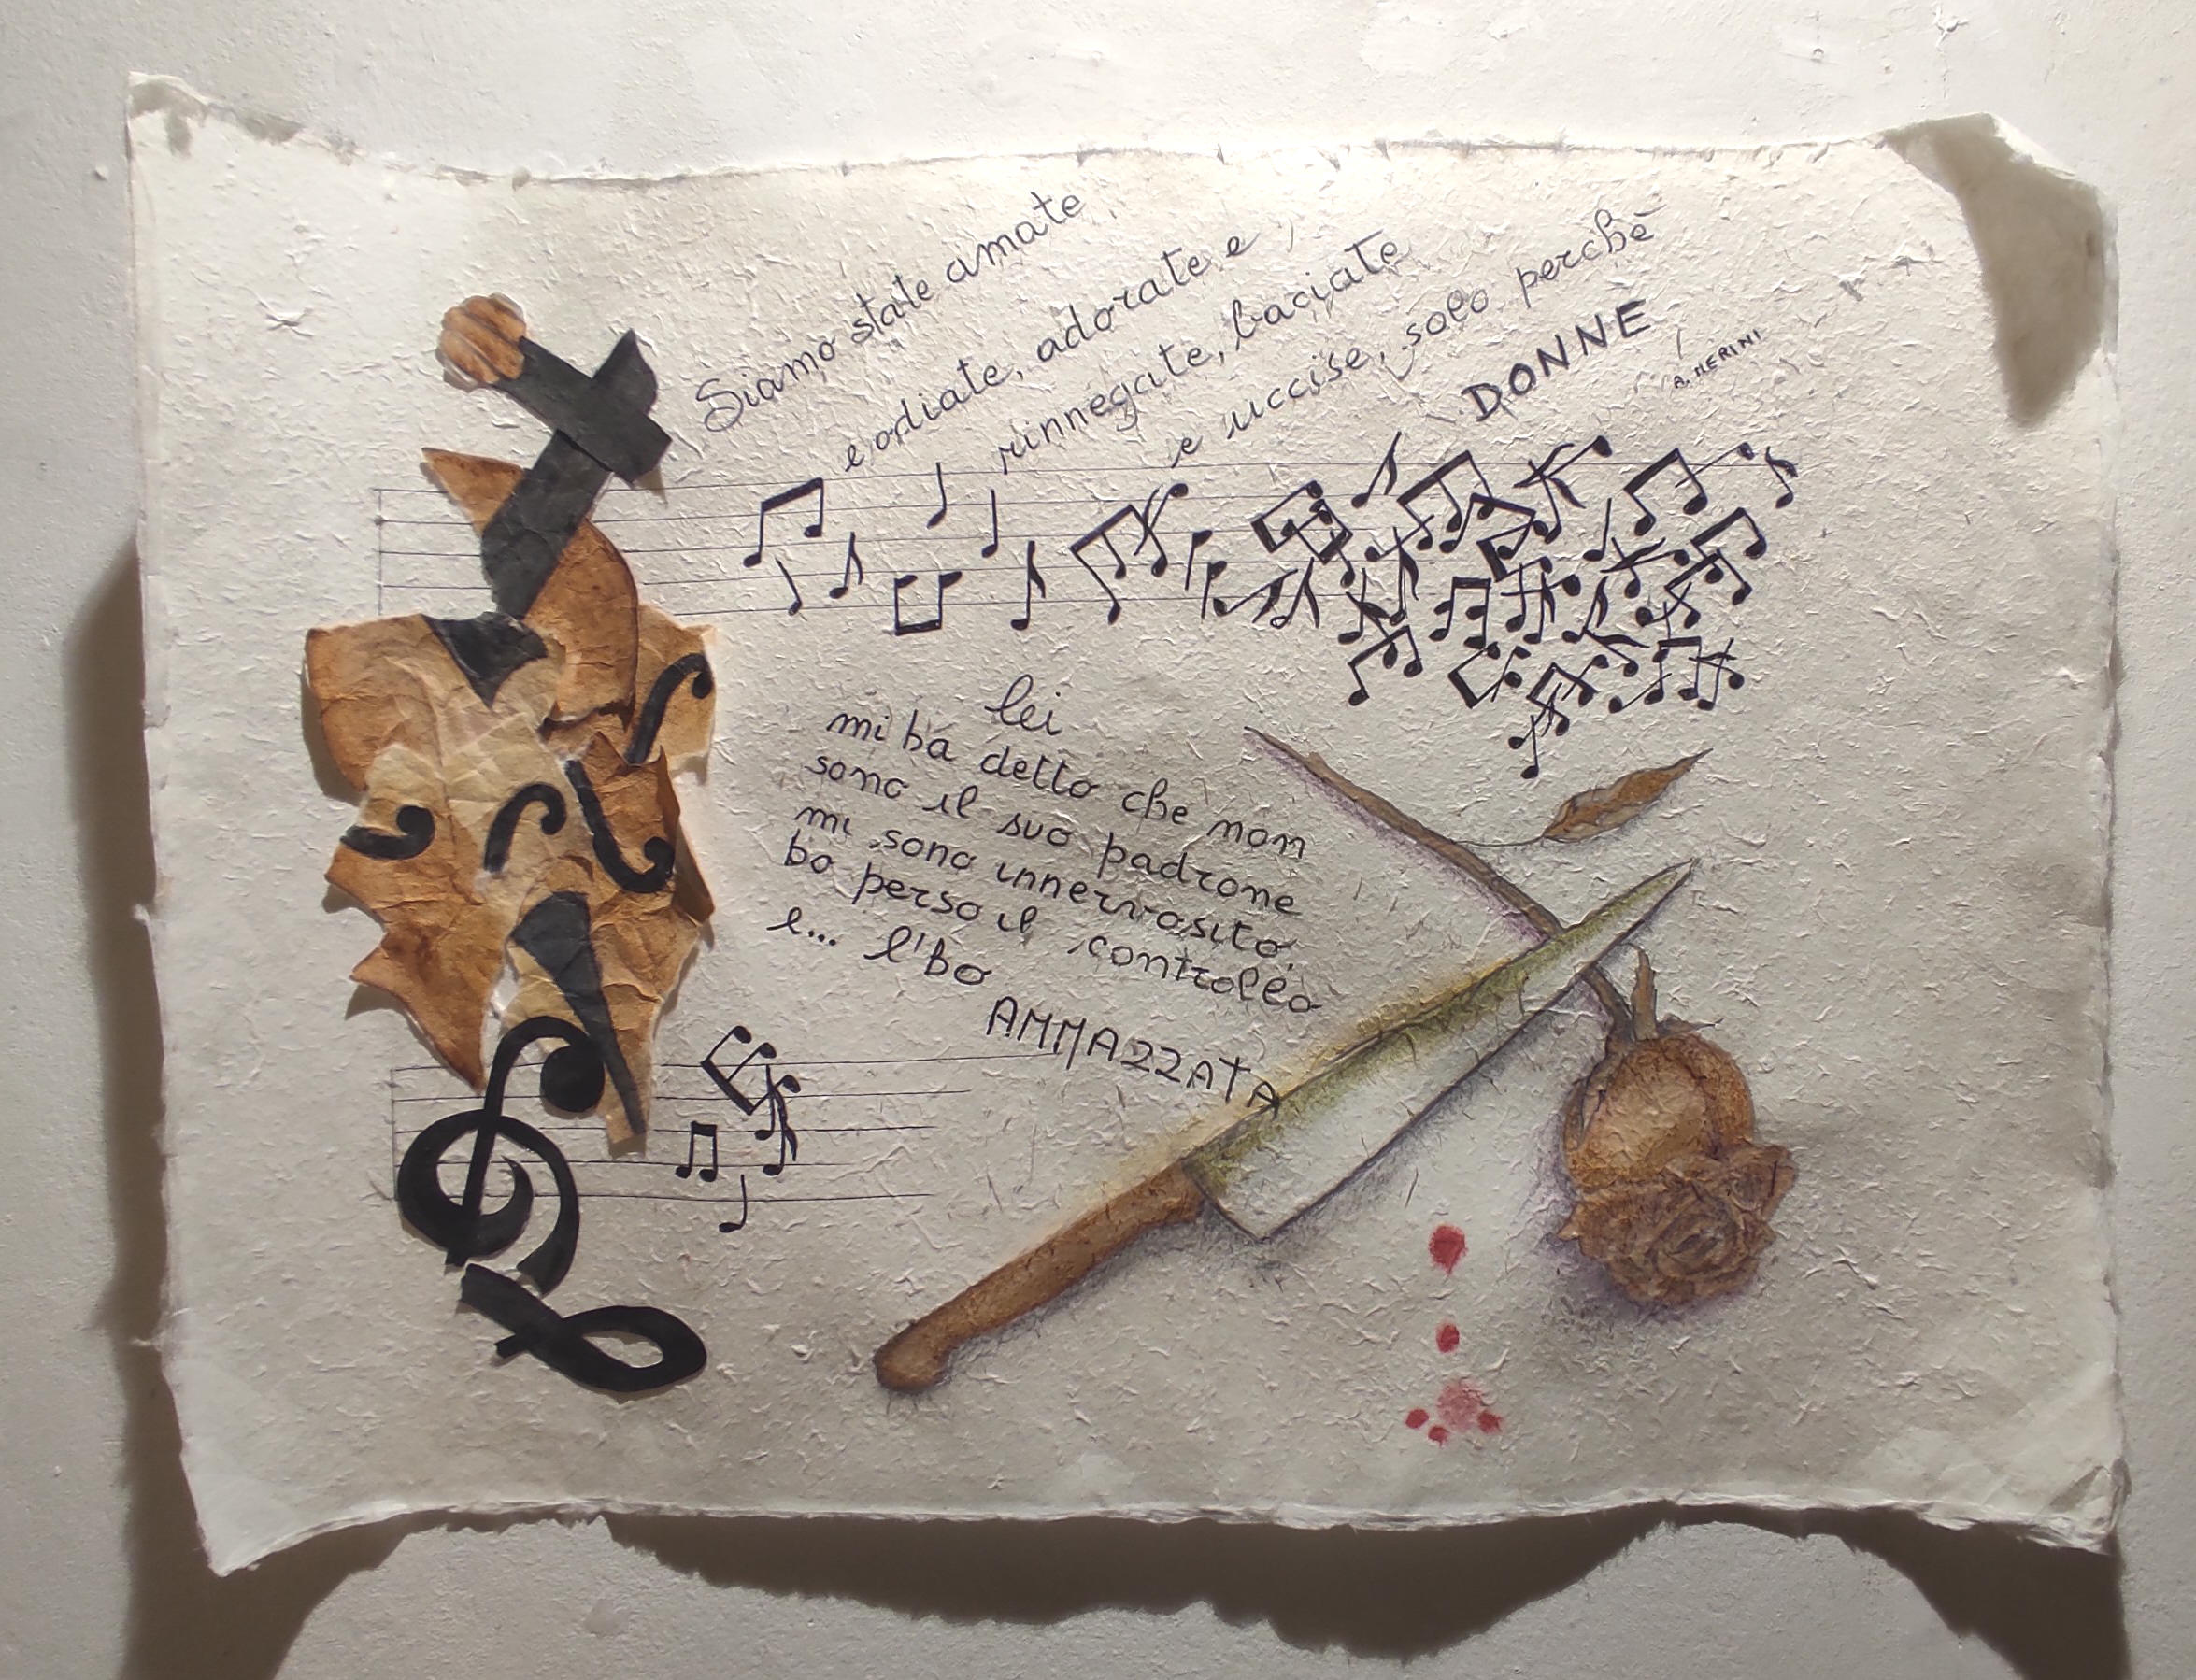 Siamo state amate
e odiate, adorate e
rinnegate, baciate
e uccise, solo perchè
DONNE
A. MERINI
lei
mi ha detto che non
sono il suo padrone
mi sono innervosito.
ho perso il controllo
e... l'ho
AMMAZZATA